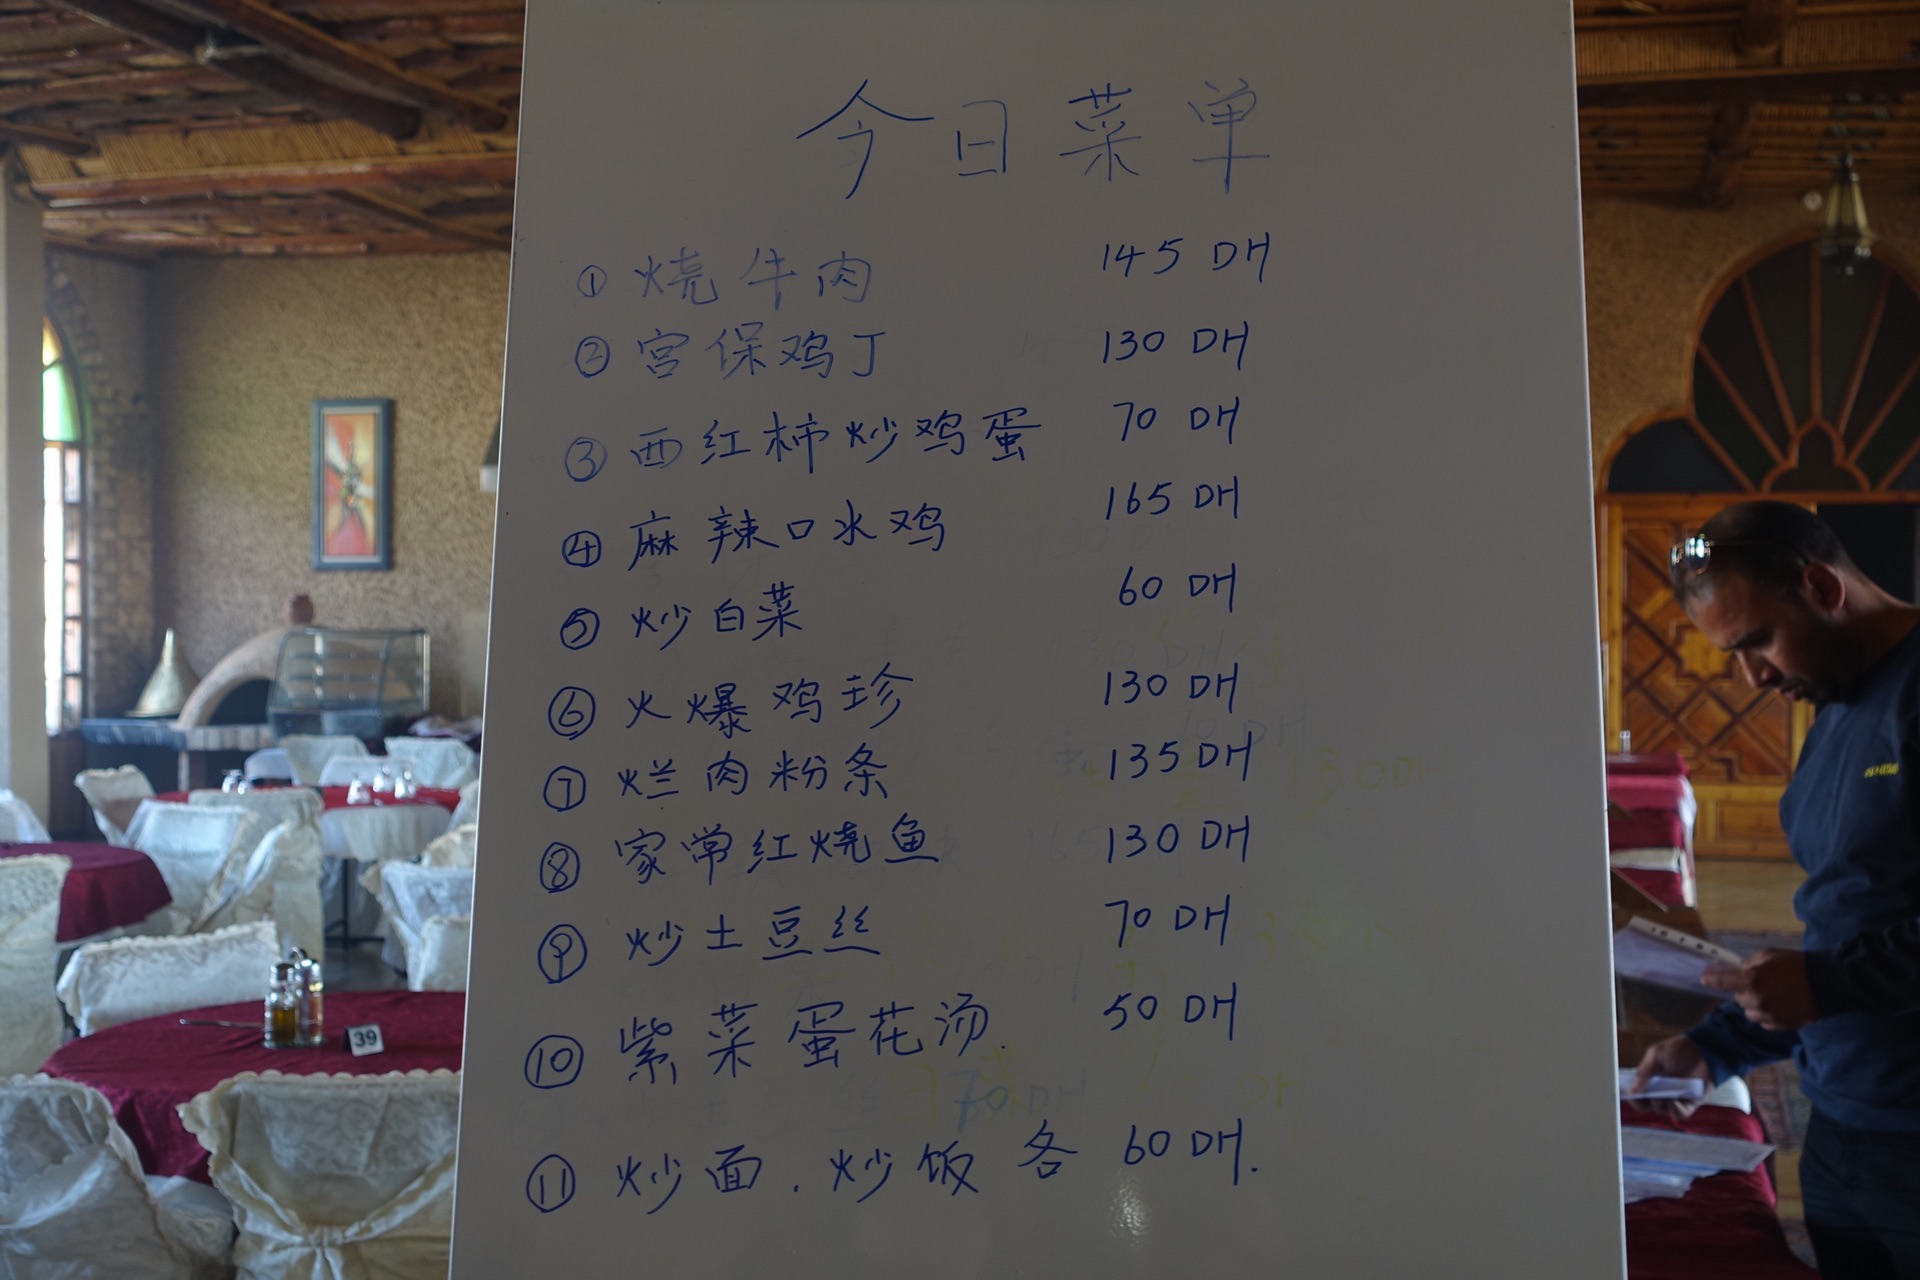 今日菜单
① 烧牛肉 145 DH
② 宫保鸡丁 130 DH
③ 西红柿炒鸡蛋 70 DH
④ 麻辣口水鸡 165 DH
⑤ 炒白菜 60 DH
⑥ 火爆鸡珍 130 DH
⑦ 烂肉粉条 135 DH
⑧ 家常红烧鱼 130 DH
⑨ 炒土豆丝 70 DH
⑩ 紫菜蛋花汤. 50 DH
⑪ 炒面. 炒饭 各 60 DH.
39